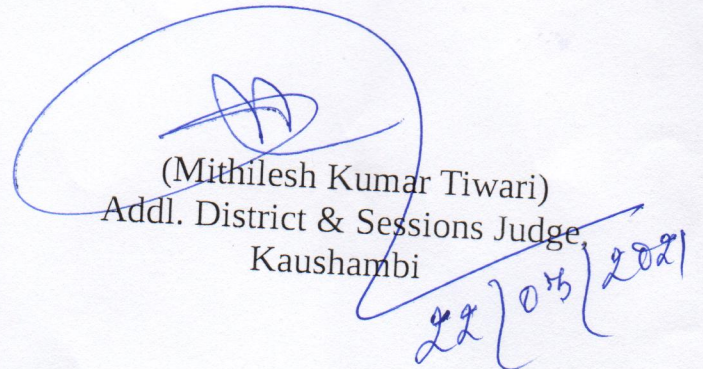 (Mithilesh Kumar Tiwari)
Addl. District & Sessions Judge,
Kaushambi
22/03/2021